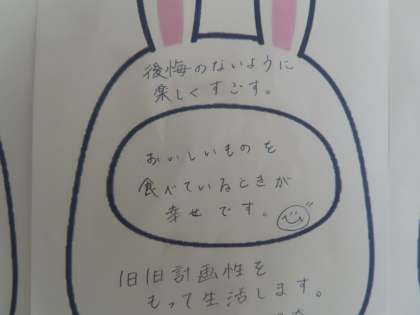 後悔のないように
楽しくすごす。
おいしいものを
食べているときが
幸せです。
1日1日計画性を
もって生活します。